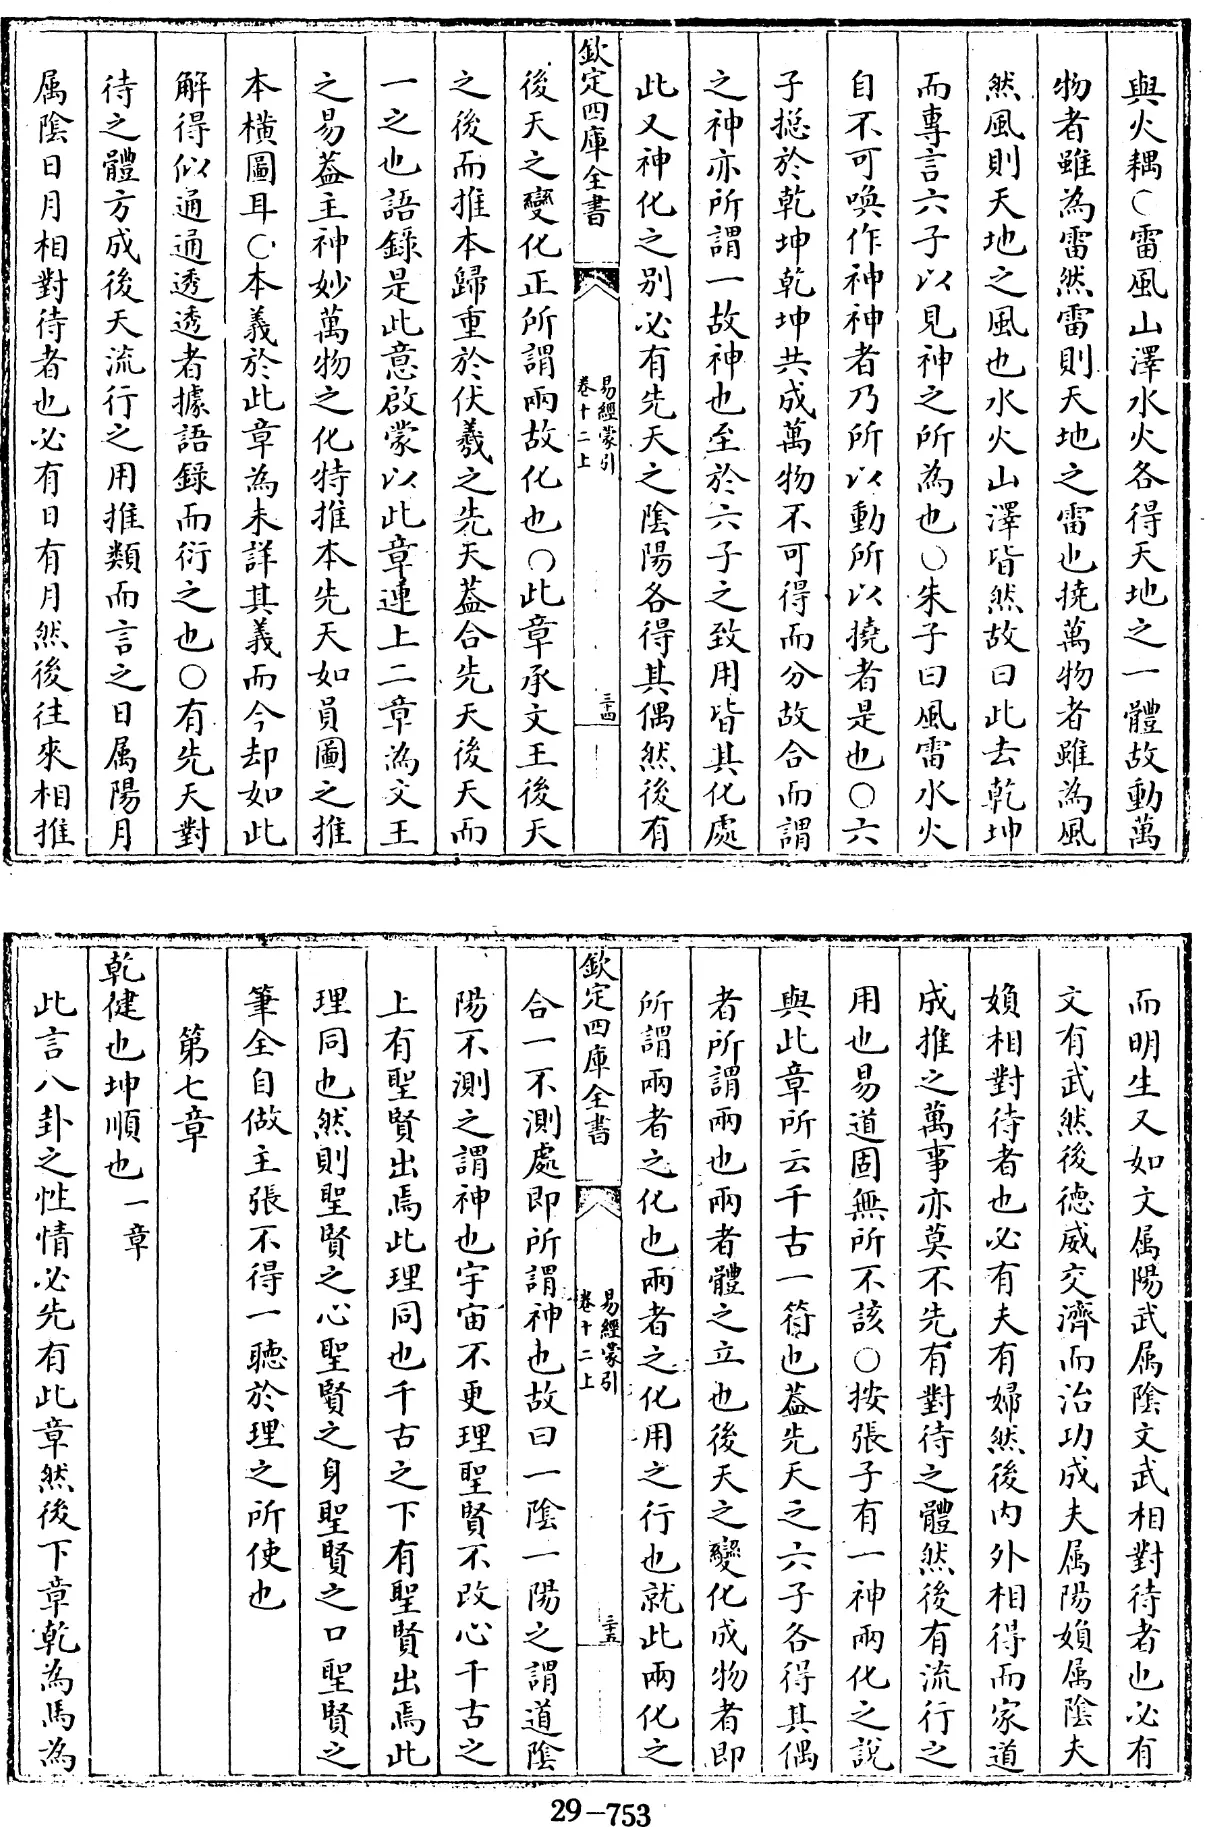 與火耦○雷風山澤水火各得天地之一體故動萬
物者雖為雷然雷則天地之雷也撓萬物者雖為風
然風則天地之風也水火山澤皆然故曰此去乾坤
而專言六子以見神之所為也○朱子曰風雷水火
自不可喚作神神者乃所以動所以撓者是也○六
子捴於乾坤乾坤共成萬物不可得而分故合而謂
之神亦所謂一故神也至於六子之致用皆其化處
此又神化之别必有先天之陰陽各得其偶然後有
欽定四庫全書
易經蒙引
卷十二上
三十四
後天之變化正所謂兩故化也○此章承文王後天
之後而推本歸重於伏羲之先天蓋合先天後天而
一之也語錄是此意啟蒙以此章連上二章為文王
之易蓋主神妙萬物之化特推本先天如員圖之推
本橫圖耳○本義於此章為未詳其義而今却如此
解得似通通透透者據語錄而衍之也○有先天對
待之體方成後天流行之用推類而言之日属陽月
属陰日月相對待者也必有日有月然後往來相推
而明生又如文属陽武属陰文武相對待者也必有
文有武然後德威交濟而治功成夫属陽媍属陰夫
媍相對待者也必有夫有婦然後内外相得而家道
成推之萬事亦莫不先有對待之體然後有流行之
用也易道固無所不該○按張子有一神兩化之說
與此章所云千古一符也蓋先天之六子各得其偶
者所謂兩也兩者體之立也後天之變化成物者即
所謂兩者之化也兩者之化用之行也就此兩化之
欽定四庫全書
易經蒙引
卷十二上
三十五
合一不測處即所謂神也故曰一陰一陽之謂道陰
陽不測之謂神也宇宙不更理聖賢不改心千古之
上有聖賢出焉此理同也千古之下有聖賢出焉此
理同也然則聖賢之心聖賢之身聖賢之口聖賢之
筆全自做主張不得一聽於理之所使也
第七章
乾健也坤順也一章
此言八卦之性情必先有此章然後下章乾為馬為
29-753